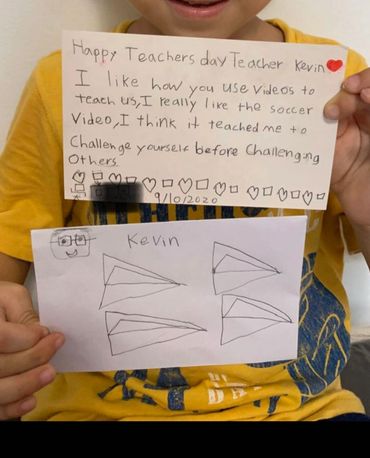 Happy Teachers day Teacher Kevin
I like how you use videos to
teach us, I really like the soccer
Video, I think it taught me to
Challenge yourself before Challenging
Others.
9/10/2020
Kevin